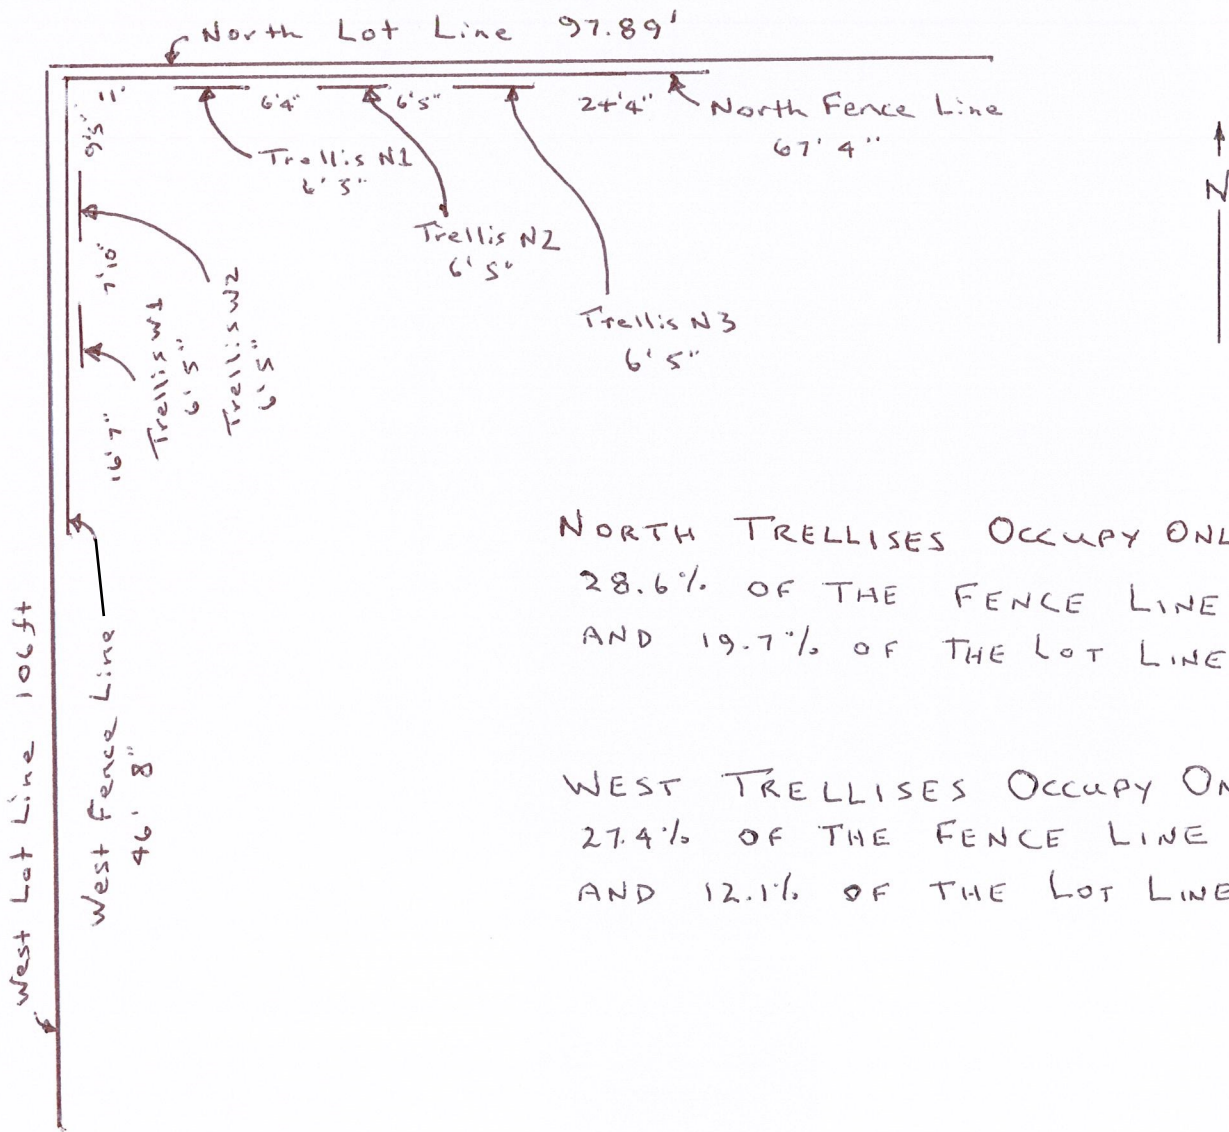 North Lot Line 97.89'
11'
6'4"
6'5"
24'4"
North Fence Line
67' 4"
N
9'5"
Trellis N1
6' 3"
Trellis N2
6' 5"
Trellis N3
6' 5"
7'10"
Trellis W1
6' 5"
Trellis W2
6' 5"
16'7"
West Lot Line 106 ft
West Fence Line
46' 8"
NORTH TRELLISES OCCUPY ONL
28.6% OF THE FENCE LINE
AND 19.7% OF THE LOT LINE
WEST TRELLISES OCCUPY ON
27.4% OF THE FENCE LINE
AND 12.1% OF THE LOT LINE